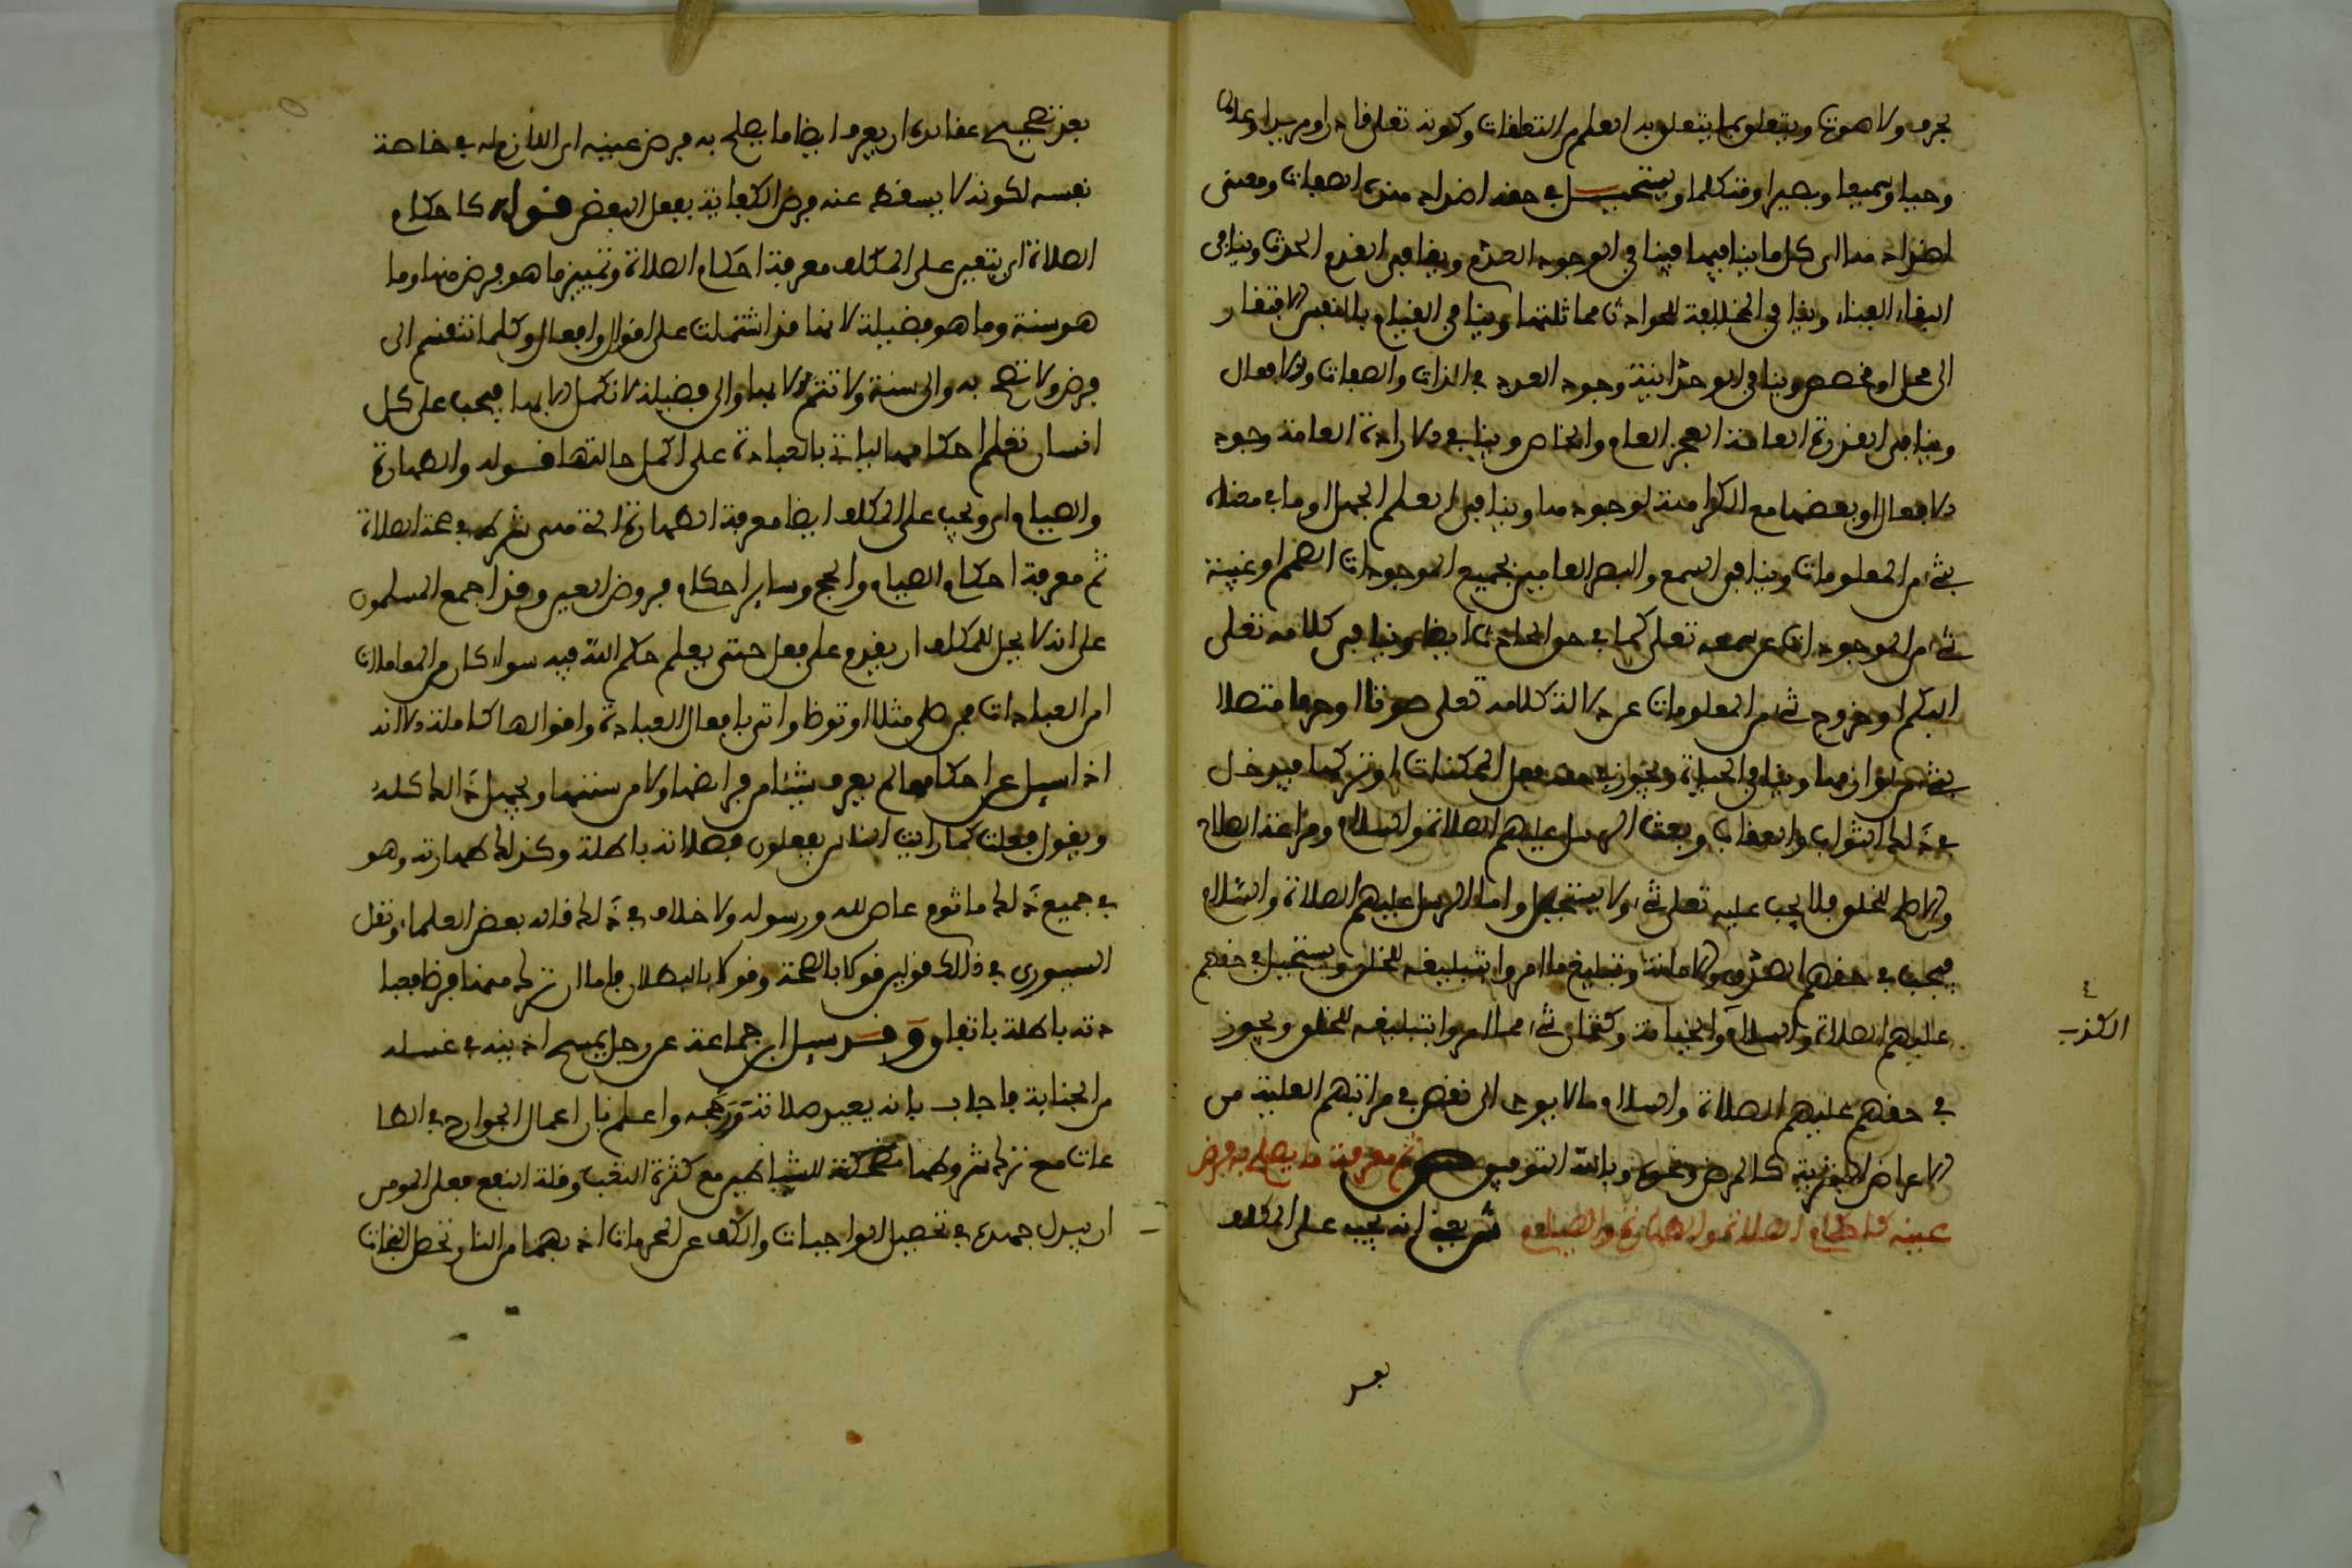 بحرف ولا صوت ويتعلق بما يتعلق به العلم من المتعلقات وكونه تعلى قادرا ومريدا وعالما
وحيا وسميعا وبصيرا ومتكلما ويستحيل في حقه اضداد هذه الصفات ومعنى
اضدادها اي كل ما ينافيها فينافي الوجود العدم وينافي القدم الحدث وينافي
البقاء الفناء وينافي المخالفة للحوادث مماثلتها وينافي القيام بالنفس الافتقار
الى محل او مخصص وينافي الوحدانية وجود العدد في الذات والصفات والافعال
وينافي القدرة العامة العجز العام والخاص وينافي الارادة العامة وجود
الافعال او بعضها مع الكراهة لوجودها وينافي العلم الجهل وما في معناه
بشيء من المعلومات وينافي السمع والبصر العامين لجميع الموجودات الصمم او غيبة
شيء من الموجودات عن سمعه تعلى كما في حق الحادث ايضا وينافي كلامه تعلى
البكم او خروج شيء من المعلومات عن دلالة كلامه تعلى صوتا او حرفا متصلا
بشيء من لوازمها وينافي الحياة ويجوز في حقه فعل الممكنات او تركها فيدخل
في ذلك الثواب والعقاب وبعث الرسل عليهم الصلاة والسلام ومراعة الصلاح
والاصلح للخلق فلا يجب عليه تعلى شيء ولا يستحيل واما الرسل عليهم الصلاة والسلام
فيجب في حقهم الصدق والامانة وتبليغ ما امروا بتبليغه للخلق ويستحيل في حقهم
الكذب
عليهم الصلاة والسلام والخيانة وكتمان شيء مما امروا بتبليغه للخلق ويجوز
في حقهم عليهم الصلاة والسلام ما لا يودي الى نقص في مراتبهم العلية من
الاعراض البشرية كالمرض ونحوه وبالله التوفيق ثم معرفة ما يصلح به فرض
عينه كاحكام الصلاة والطهارة والصيام ش يعني انه يجب على المكلف
بعد
بعد تصحيح عقايده ان يعرف ايضا ما يصلح به فرض عينه اي اللازم له في خاصة
نفسه لكونه لا يسقط عنه فرض الكفاية بفعل البعض قوله كاحكام
الصلاة اي يتعين على المكلف معرفة احكام الصلاة وتمييز ما هو فرض منها وما
هو سنة وما هو فضيلة لانها قد اشتملت على اقوال وافعال وكلها تنقسم الى
فرض ولا تصح الا به والى سنة ولا تتم الا بها والى فضيلة لا تكمل الا بها فيجب على كل
انسان تعلم احكامها لياتي بالعبادة على اكمل حالتها قوله والطهارة
والصيام اي ويجب على المكلف ايضا معرفة الطهارة التي هي شرط في صحة الصلاة
ثم معرفة احكام الصيام والحج وساير احكام فروض العين وقد اجمع المسلمون
على انه لا يحل للمكلف ان يقدم على فعل حتى يعلم حكم الله فيه سواء كان من المعاملات
ام العبادات فمن صلى مثلا او توضا واتى بافعال العبادة واقوالها كاملة الا انه
اذا سيل عن احكامها لم يعرف شيئا من فرايضها ولا من سننها ويجهل ذالك كله
ويقول فعلت كما رايت الناس يفعلون فصلاته باطلة وكذلك طهارته وهو
في جميع ذلك ماثوم عاص لله ورسوله ولا خلاف في ذلك قاله بعض العلماء ونقل
السيوري في ذلك قولين قولا بالصحة وقولا بالبطلان فاما ان ترك منها فرضا فعبا
دته باطلة باتفاق وقد سيل ابن جماعة عن رجل يمسح اذنيه في غسله
من الجنابة فاجاب بانه يعيد صلاته واعلم بان اعمال الجوارح في الطا
عات مع ترك شروطها مضحكة للشياطين مع كثرة التعب وقلة النفع فعلى المومن
ان يبذل جهده في تحصيل الواجبات والكف عن المحرمات اذ بهما من النار وتحصل النجات